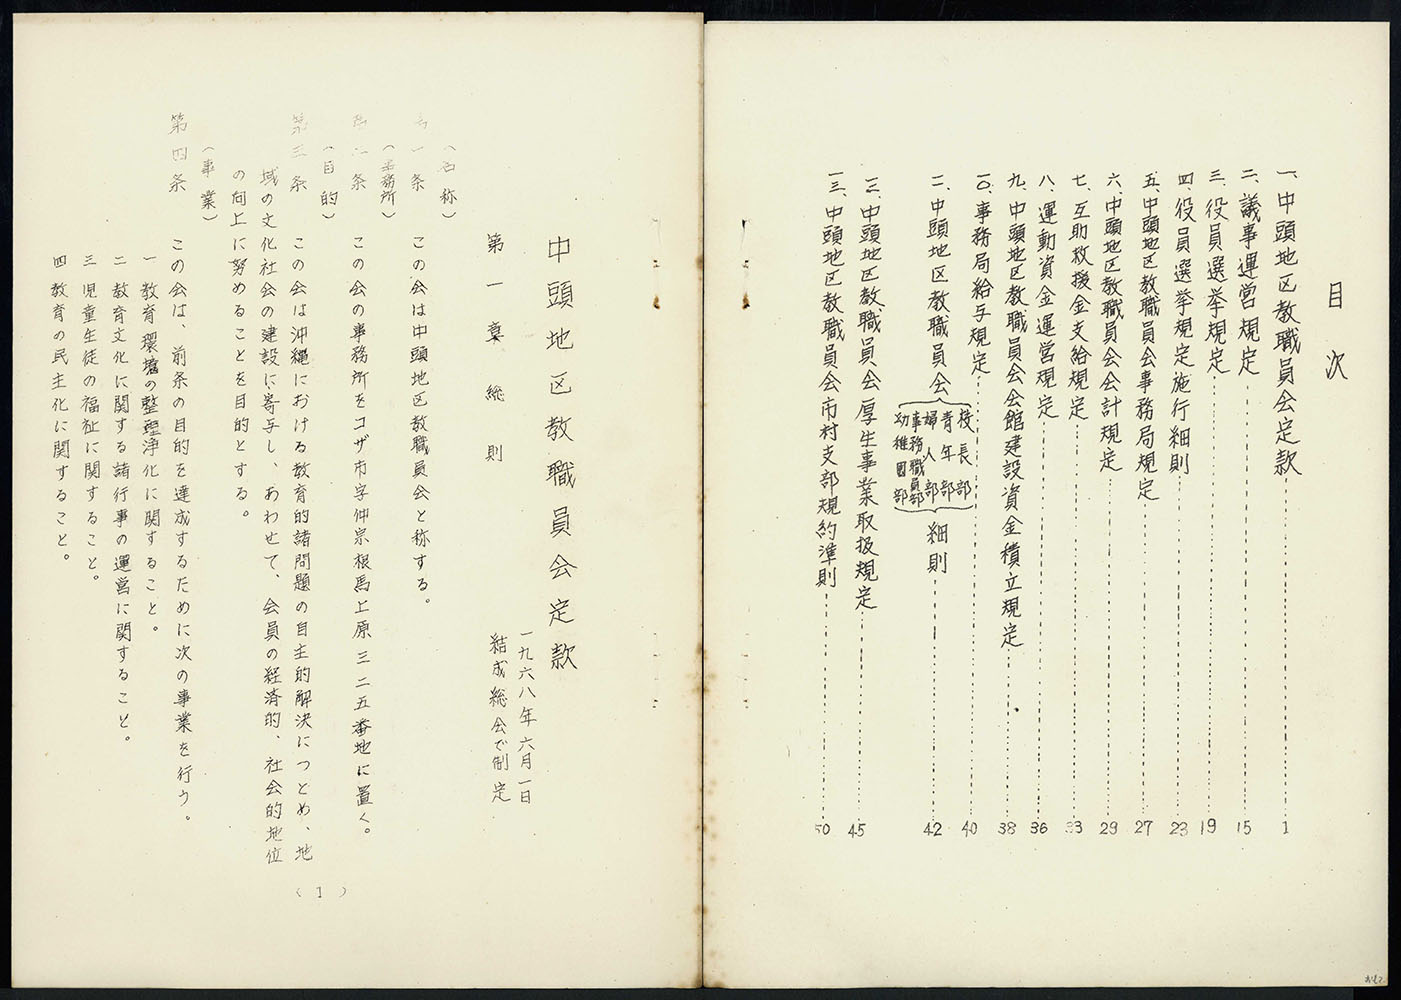 目次
一、中頭地区教職員会定款 1
二、議事運営規定 15
三、役員選挙規定 19
四、役員選挙規定施行細則 23
五、中頭地区教職員会事務局規定 27
六、中頭地区教職員会会計規定 29
七、互助救援金支給規定 33
八、運動資金運営規定 36
九、中頭地区教職員会会館建設資金積立規定 38
一〇、事務局給与規定 40
二、中頭地区教職員会
校長部
青年部
婦人部
事務職員部
幼稚園部
細則 42
三、中頭地区教職員会厚生事業取扱規定 45
一三、中頭地区教職員会市村支部規約準則 50
中頭地区教職員会定款
一九六八年六月一日
結成総会で制定
第一章 総則
(名称)
第一条 この会は中頭地区教職員会と称する。
(事務所)
第二条 この会の事務所をコザ市字仲宗根馬上原三二五番地に置く。
(目的)
第三条 この会は沖縄における教育的諸問題の自主的解決につとめ、地
域の文化社会の建設に寄与し、あわせて、会員の経済的、社会的地位
の向上に努めることを目的とする。
(事業)
第四条 この会は、前条の目的を達成するために次の事業を行う。
一 教育環境の整理浄化に関すること。
二 教育文化に関する諸行事の運営に関すること。
三 児童生徒の福祉に関すること。
四 教育の民主化に関すること。
(1)